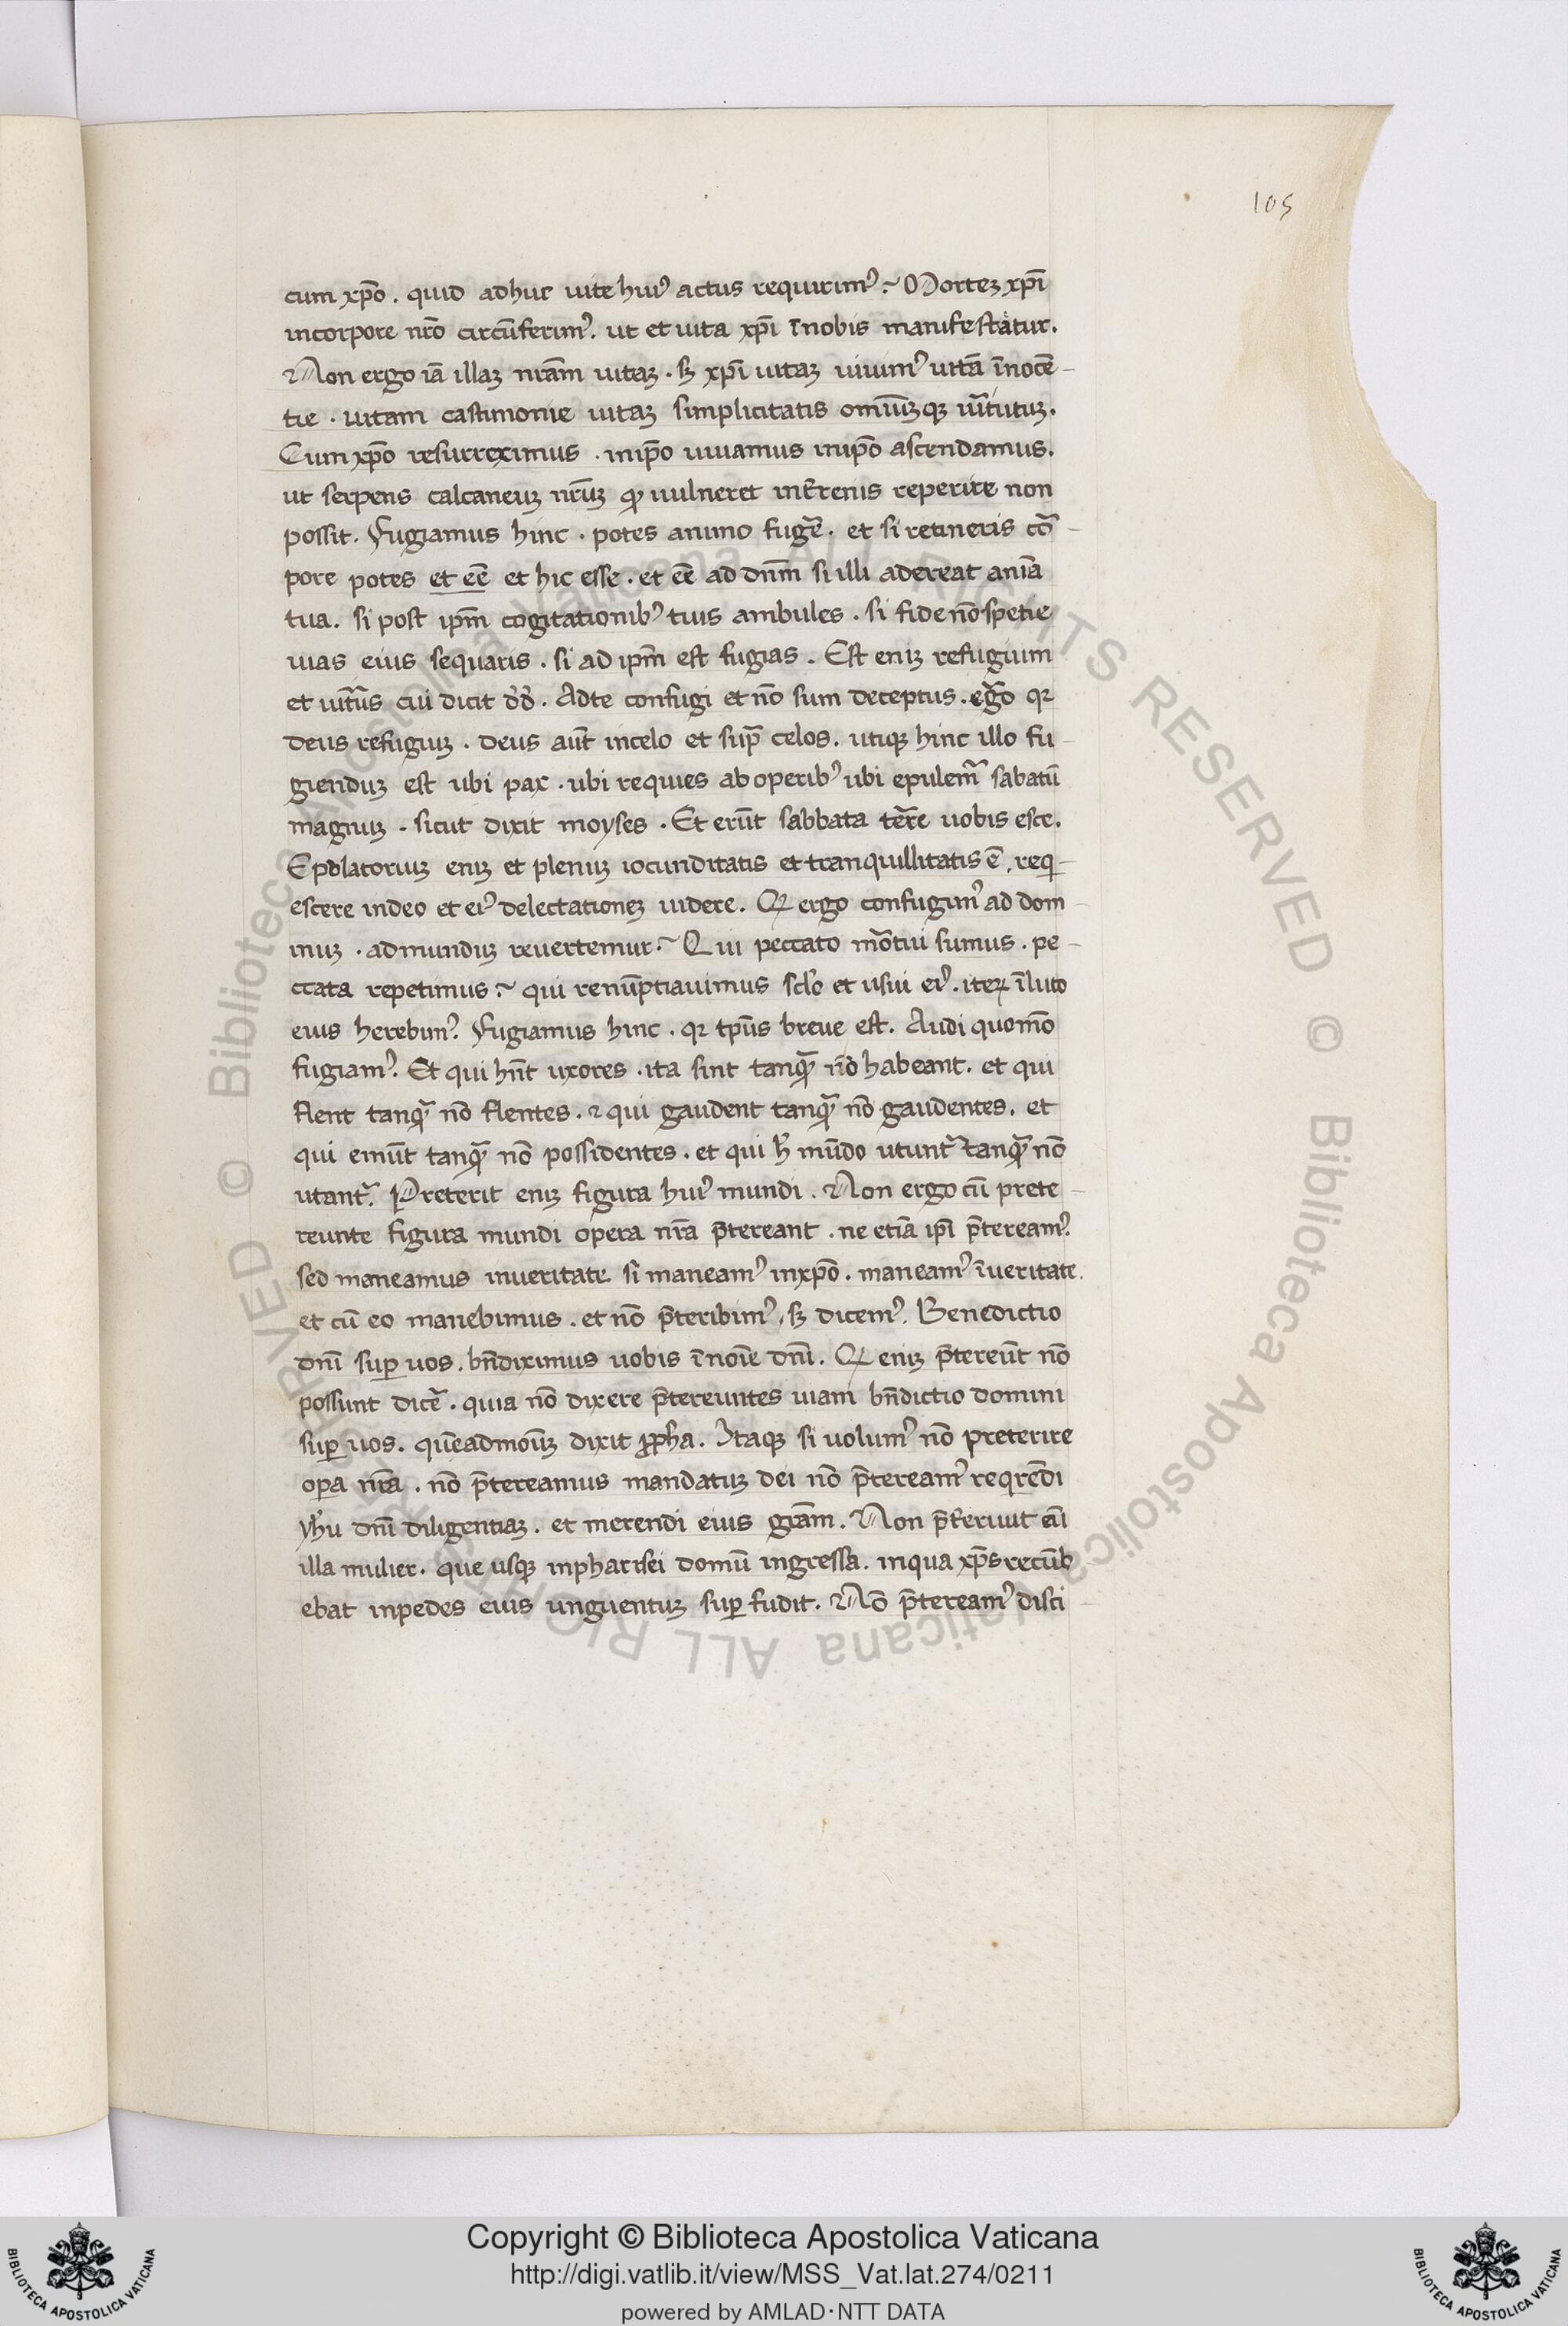 105
cum xp̄o . quid adhuc uite hui⁹ actus requirim⁹ ? Morteꝫ xp̄i
incorpore nr̄o circūferim⁹ . ut et uita xp̄i īnobis manifestatur .
Non ergo iā illaꝫ nrām uitaꝫ . sꝫ xp̄i uitaꝫ uiuim⁹ uitā īnocē-
tie . uitam castimonie uitaꝫ simplicitatis omniūꝫqꝫ uirtutuꝫ .
Cum xp̄o resurreximus . inip̄o uiuamus inip̄o ascendamus .
ut serpens calcaneuꝫ nrūꝫ ꝙ uulneret intērenis reperire non
possit . Fugiamus hinc . potes animo fugē . et si retineris cō-
pore potes et eē et hic esse . et eē ad dnm̄ si illi adereat anīa
tua . si post ipm̄ cogitationib⁹ tuis ambules . si fide nōspetie
uias eius sequaris . si ad ipm̄ est fugias . Est eniꝫ refugium
et uirtūs cui dicit dd̄ . Adte confugi et nō sum deceptus . ergo qꝛ
deus refugiuꝫ . deus aūt incelo et sup̄ celos . utiqꝫ hinc illo fu
gienduꝫ est ubi pax . ubi requies ab operib⁹ ubi epulem̄ sabatū
magnuꝫ . sicut dixit moyses . Et erūt sabbata tērre uobis esce .
Epolatoriuꝫ eniꝫ et plenuꝫ iocunditatis et tranquillitatis ē . reqi-
escere indeo et ei⁹ delectationeꝫ uidere . Qꝫ ergo confugim⁹ ad dom
inuꝫ . ad munduꝫ reuertemur ? Qui peccato mōtui sumus . pe-
ccata repetimus ? qui renūptiauimus sclo et usui ei⁹ . iteꝝ īluto
eius herebim⁹ . Fugiamus hinc . qꝛ tpūs breue est . Audi quomō
fugiam⁹ . Et qui hn̄t uxores . ita sint tanqꝫ nō habeant . et qui
flent tanqꝫ nō flentes . ⁊ qui gaudent tanqꝫ nō gaudentes . et
qui emūt tanqꝫ nō possidentes . et qui h̄ mūdo utunt̄ tanqꝫ nō
utant̄ . Preterit eniꝫ figura hui⁹ mundi . Non ergo cū prete-
reunte figura mundi opera nrā p̄tereant . ne etiā ip̄i p̄teream⁹ .
sed maneamus inueritate si maneam⁹ inxp̄o . maneam⁹ īueritate .
et cū eo manebimus . et nō p̄teribim⁹ , sꝫ dicem⁹ . Benedictio
dnī suꝑ uos . bn̄diximus uobis īnoīe dnī . Qꝫ eniꝫ p̄tereūt nō
possunt dicē . quia nō dixere p̄tereuntes uiam bn̄dictio domini
suꝑ uos . quēadmodūꝫ dixit ꝓpha . Itaqꝫ si uolum⁹ nō preterire
oꝑa nrā . nō p̄tereamus mandatuꝫ dei nō p̄teream⁹ reqrēdi
yhu dnī diligentiaꝫ . et merendi eius grām . Non p̄teriuit cū
illa mulier . que usqꝫ inpharisei domū ingressa . inqua xp̄s recūb
ebat inpedes eius unguentuꝫ suꝑ fudit . Nō p̄teream⁹ disci-
© Biblioteca Apostolica Vaticana ALL RIGHTS RESERVED © Biblioteca Apostolica Vaticana ALL RIGHTS RESERVED
Copyright © Biblioteca Apostolica Vaticana
http://digi.vatlib.it/view/MSS_Vat.lat.274/0211
powered by AMLAD·NTT DATA
BIBLIOTECA APOSTOLICA VATICANA
BIBLIOTECA APOSTOLICA VATICANA